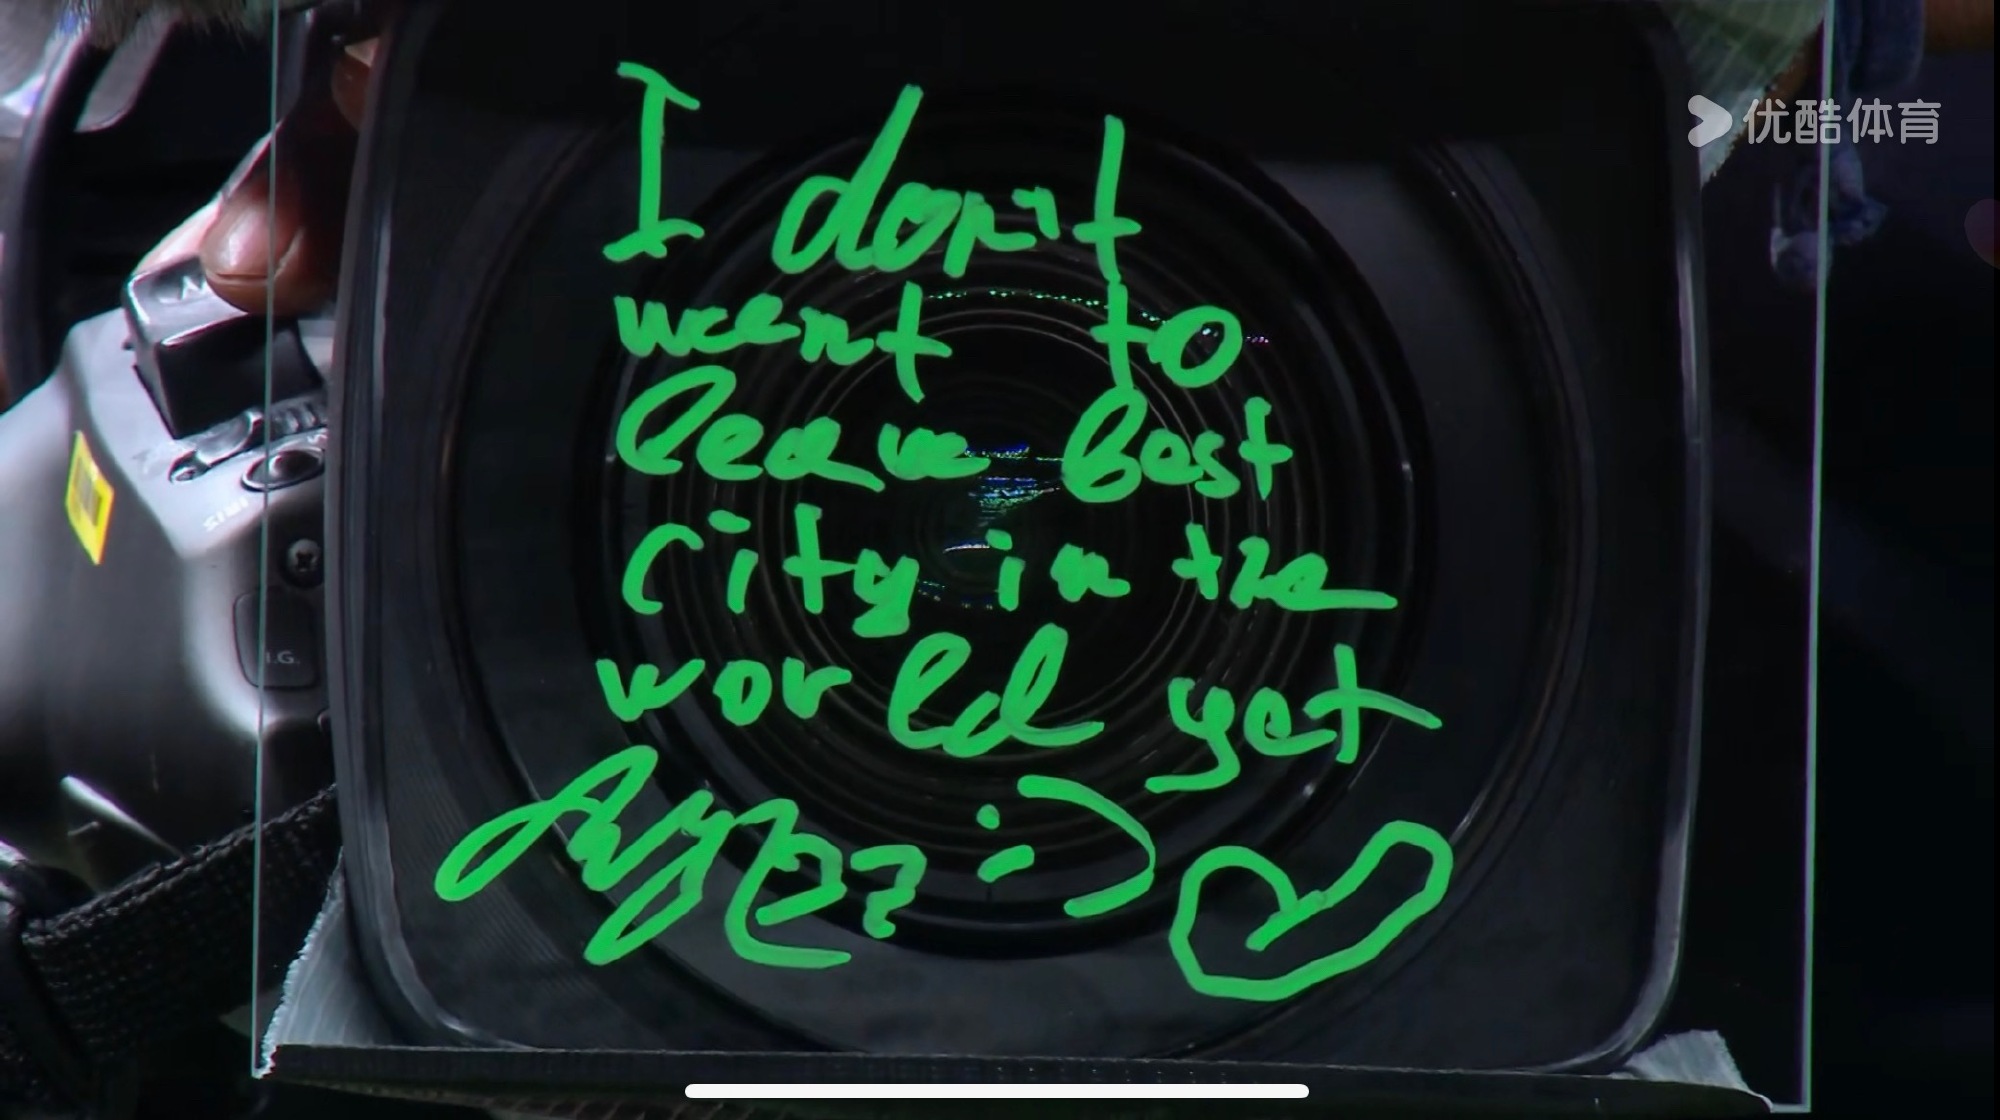 优酷体育
I don't
want to
leave best
city in the
world yet
:)
I.G.
IRIS